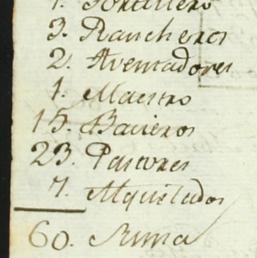 1. Portillero
3. Rancheros
2. Aventadores
1. Maestro
15. Bacieros
23. Pastores
7. Alquilados
60. Suma